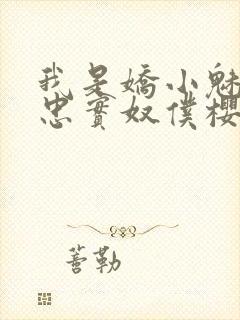 我是嬌小魅
忠實奴僕櫻
善勒